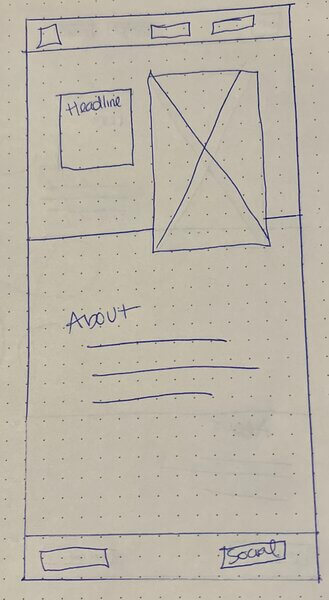 Headline
About
Social